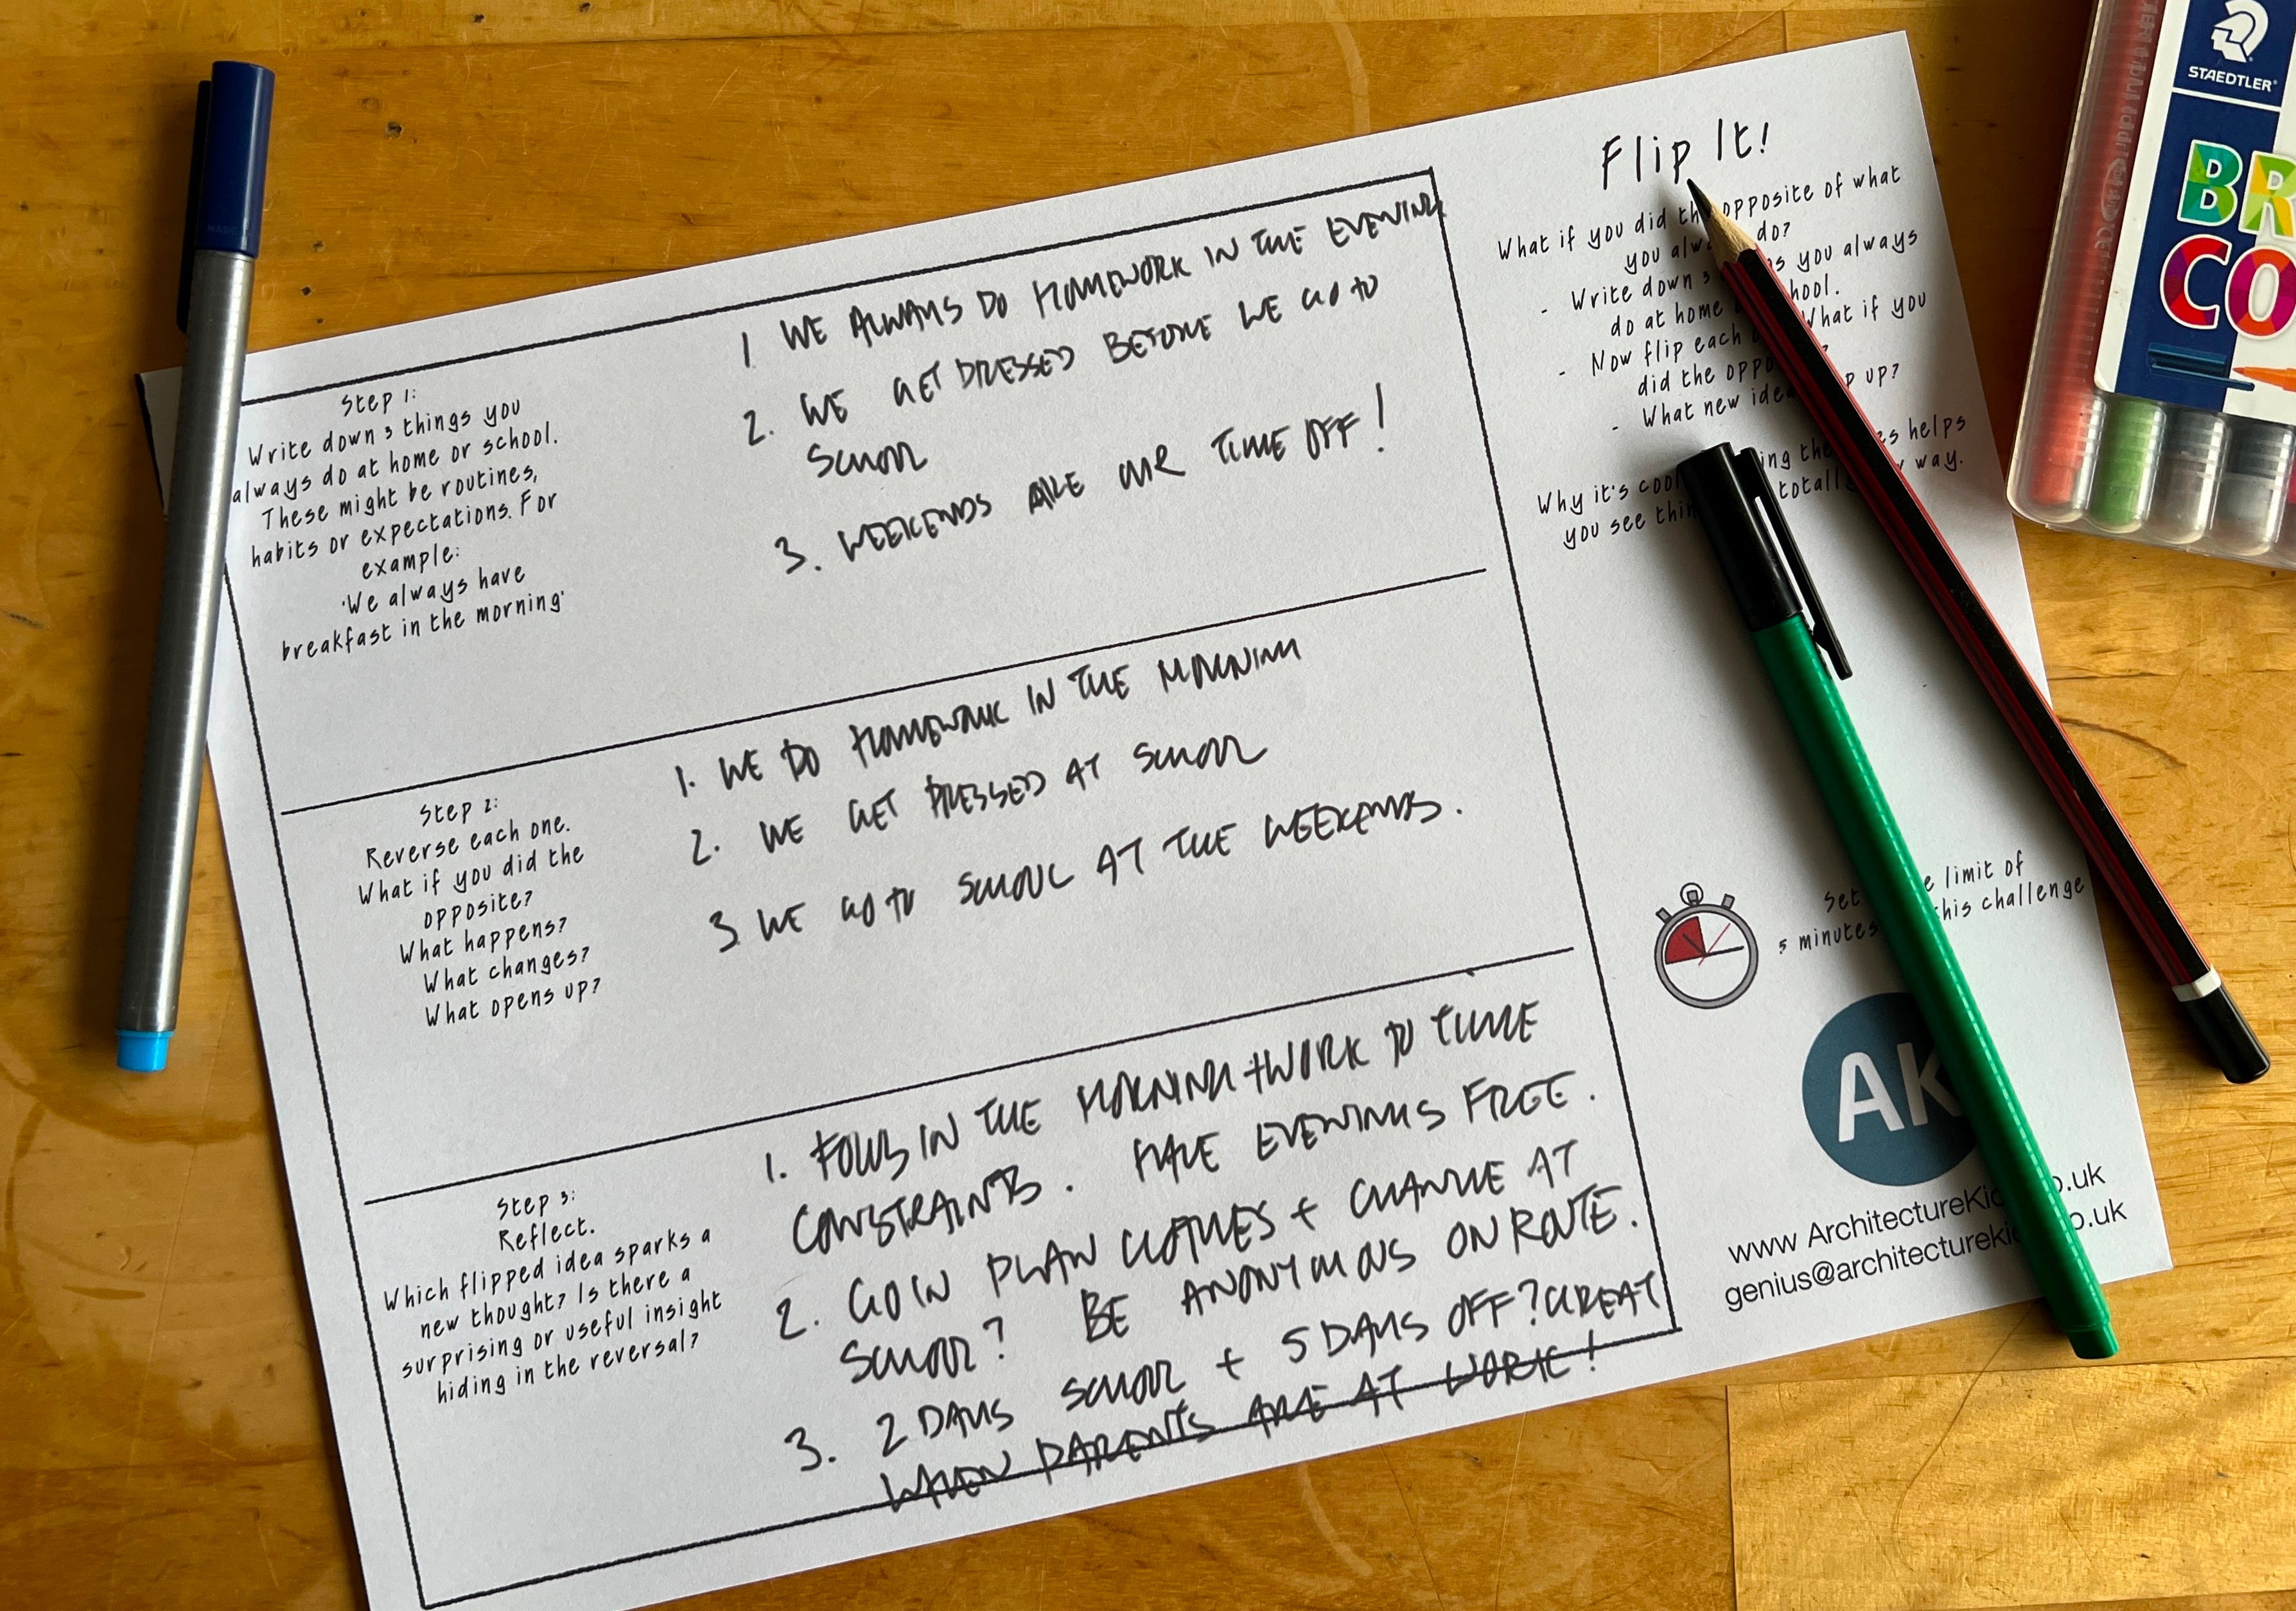 Flip It!
What if you did the opposite of what
you always do?
- Write down 3 things you always
do at home or school.
- Now flip each What if you
did the opposite?
- What new ideas pop up?
Why it's cool: helps
you see things totally way.
Step 1:
Write down 3 things you
always do at home or school.
These might be routines,
habits or expectations. For
example:
'We always have
breakfast in the morning'
1 WE ALWAYS DO HOMEWORK IN THE EVENING
2. WE GET DRESSED BEFORE WE GO TO
SCHOOL
3. WEEKENDS ARE OUR TIME OFF!
Step 2:
Reverse each one.
What if you did the
opposite?
What happens?
What changes?
What opens up?
1. WE DO HOMEWORK IN THE MORNING
2. WE GET DRESSED AT SCHOOL
3 WE GO TO SCHOOL AT THE WEEKENDS.
Step 3:
Reflect.
Which flipped idea sparks a
new thought? Is there a
surprising or useful insight
hiding in the reversal?
1. FOCUS IN THE MORNING + WORK TO TIME
CONSTRAINTS. HAVE EVENINGS FREE.
2. GO IN PLAIN CLOTHES + CHANGE AT
SCHOOL? BE ANONYMOUS ON ROUTE.
3. 2 DAYS SCHOOL + 5 DAYS OFF? GREAT
WHEN PARENTS ARE AT WORK!
Set limit of
5 minutes this challenge
AK
www ArchitectureKids.co.uk
genius@architecturekids.co.uk
STAEDTLER
BR
CO